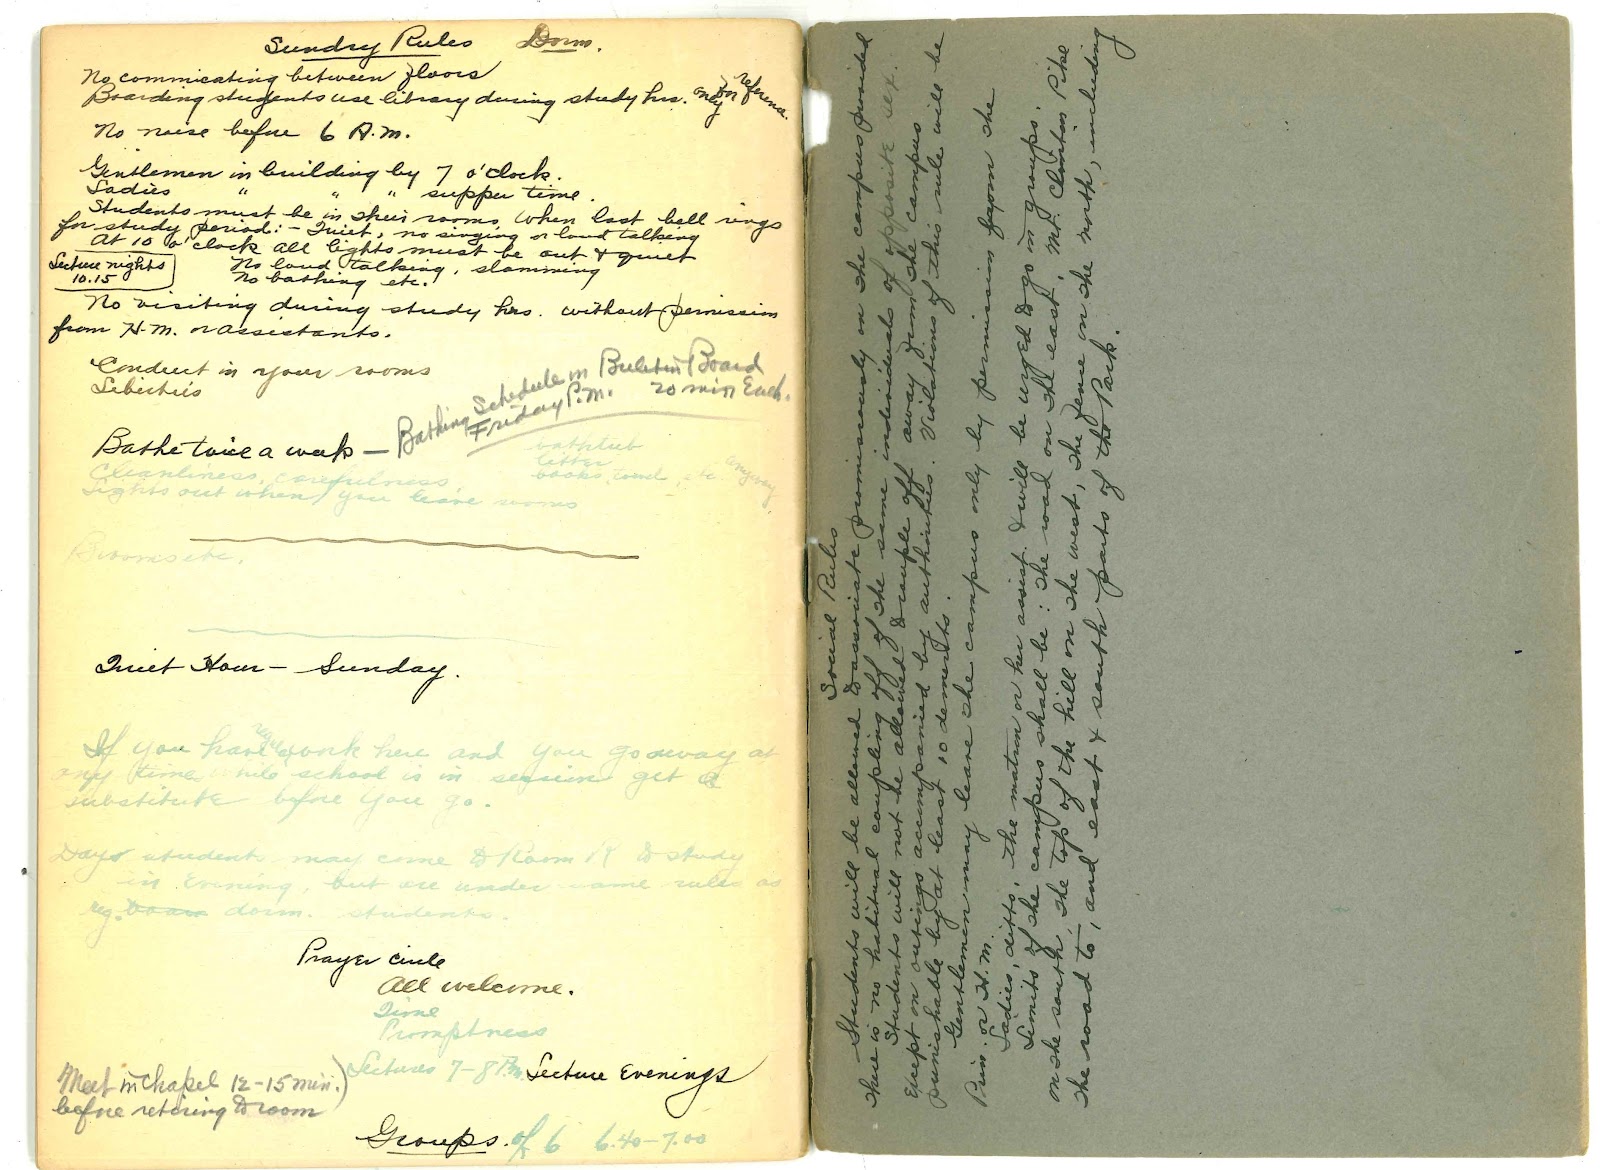 Sundry Rules Dorm.
No commicating between floors
Boarding students use library during study hrs. only for reference.
No noise before 6 A.M.
Gentlemen in building by 7 o'clock.
Ladies " " " supper time.
Students must be in their rooms when last bell rings
for study period:- Quiet, no singing or loud talking
At 10 o'clock all lights must be out & quiet
Lecture nights
10.15
No loud talking, slamming
No bathing etc.
No visiting during study hrs. without permission
from H.M. or assistants.
Conduct in your rooms
Bathing Schedule in Bulletin Board
Friday P.M. 20 min Each.
Bathe twice a week —
bathtub
litter
books, etc. anyway
Cleanliness, carefulness,
Lights out when you leave rooms
Brooms etc.
Quiet Hour — Sunday.
If you have reg. work here and you go away at
any time while school is in session get a
substitute before you go.
Days student may come to Room K to study
in Evening, but are under same rules as
reg. dorm. students.
Prayer circle
All welcome.
Time
Promptness
Lectures 7-8 P.M. Lecture Evenings
Meet in Chapel 12-15 min.
before retiring to room
Groups. of 6 6.40-7.00
Social Rules
Students will be allowed to associate promiscuously on the campus provided
there is no habitual coupling off of the same individuals of opposite sex.
Students will not be allowed to couple off away from the campus
except on outings accompanied by authorities. Violations of this rule will be
punishable by at least 10 demerits.
Gentlemen may leave the campus only by permission from the
Prin. or H.M.
Ladies, ditto, the matron or her assist. & will be urged to go in groups.
Limits of the campus shall be: the road on the east, Mt. Clinton Pike
on the south, the top of the hill on the west, the fence on the north, including
the road to, and east & south parts of the Park.